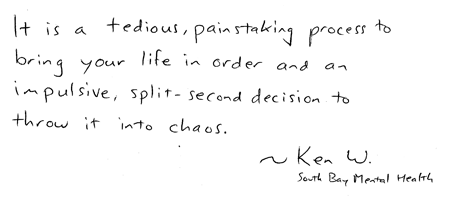 It is a tedious, painstaking process to
bring your life in order and an
impulsive, split-second decision to
throw it into chaos.
~ Ken W.
South Bay Mental Health